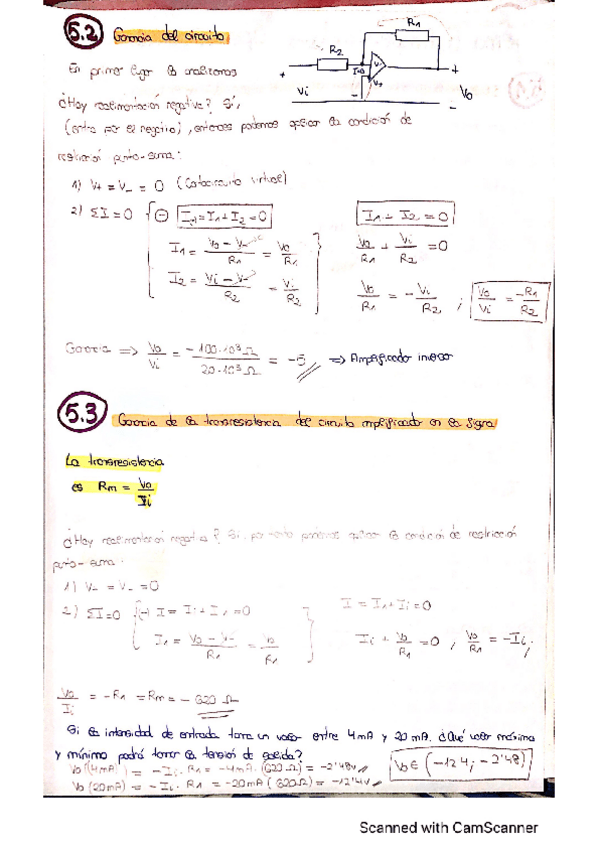 5.2 Ganancia del circuito
R1
R2
I(-)
V-
V+
+
+
Vi
Vo
-
-
-
En primer lugar la analizamos
¿Hay realimentación negativa? Sí,
(entra por el negativo), entonces podemos aplicar la condición de
restricción punto-suma:
1) V+ = V- = 0 (Cortocircuito virtual)
2) ΣI = 0 { (-) I(-) = I1 + I2 = 0
I1 = Vo - V- / R1 = Vo / R1
I2 = Vi - V- / R2 = Vi / R2
I1 + I2 = 0
Vo / R1 + Vi / R2 = 0
Vo / R1 = - Vi / R2 ; Vo / Vi = -R1 / R2
Ganancia => Vo / Vi = -100·10³Ω / 20·10³Ω = -5 => Amplificador inversor
5.3 Ganancia de la transresistencia del circuito amplificador en la figura
La transresistencia
es Rm = Vo / Ii
¿Hay realimentación negativa? Sí, por tanto podemos aplicar la condición de restricción
punto-suma:
1) V- = V- = 0
2) ΣI = 0 { (-) I = Ii + I1 = 0
I1 = Vo - V- / R1 = Vo / R1
I = I1 + Ii = 0
Ii + Vo / R1 = 0 , Vo / R1 = -Ii,
Vo / Ii = -R1 = Rm = -620 Ω
Si la intensidad de entrada toma un valor entre 4mA y 20 mA. ¿Qué valor máximo
y mínimo podrá tomar la tensión de salida?
Vo (4mA) = -Ii · R1 = -4mA · (620Ω) = -2'48V
Vo (20mA) = -Ii · R1 = -20mA (620Ω) = -12'4V
Vo ∈ (-12'4 ; -2'48)
Scanned with CamScanner